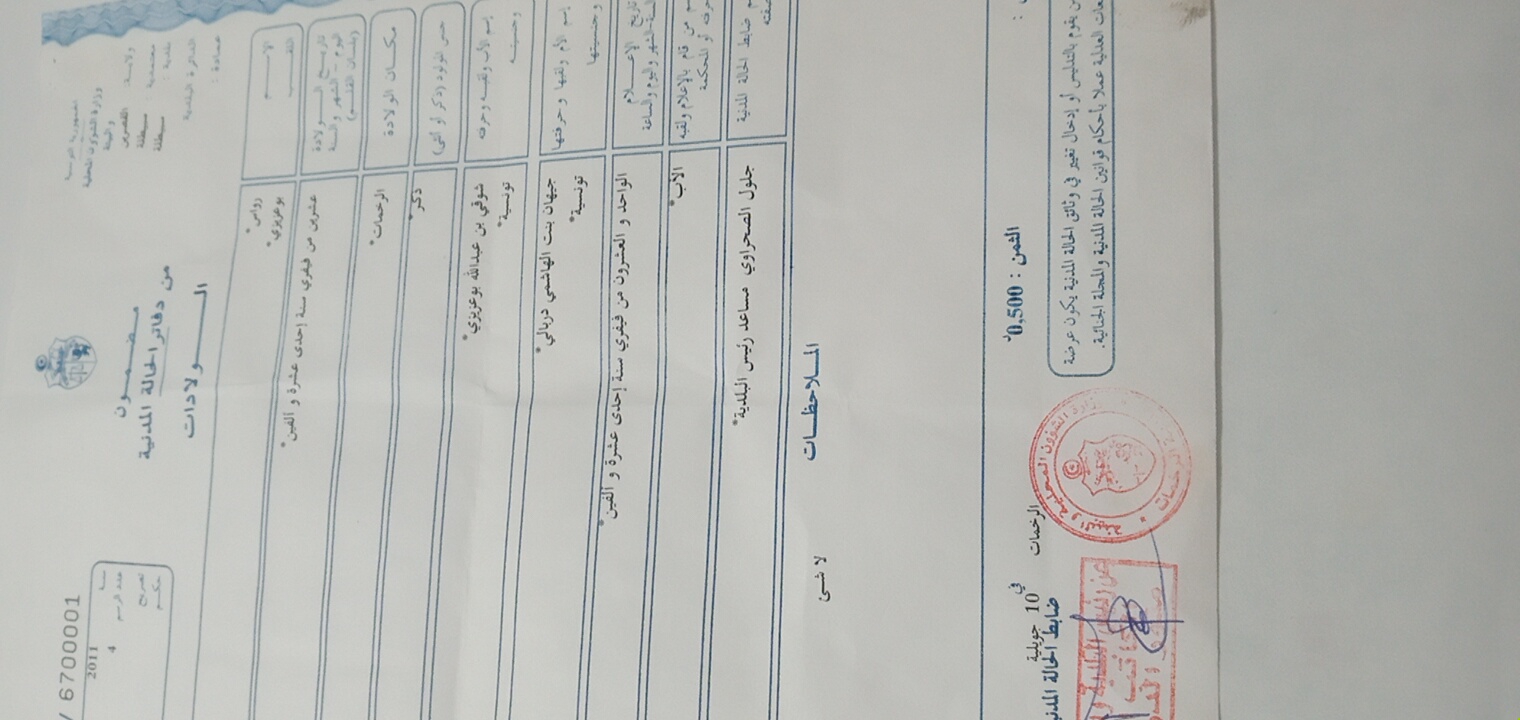 الجمهورية التونسية
وزارة الشؤون المحلية
والبيئة
ولاية: القصرين
معتمدية: سبيطلة
بلدية: سبيطلة
الدائرة البلدية
عمادة:
مضمون
من دفاتر الحالة المدنية
الـولادات
/ 6700001
سنة 2011
عدد الرسم 4
تصريح
حكم
الإسم رواس*
اللقب بوعزيزي*
تاريخ الولادة عشرين من فيفري سنة إحدى عشرة و ألفين*
اليوم - الشهر والسنة
(بلسان القلم)
مكان الولادة الرخمات*
جنس المولود (ذكر أو أنثى) ذكر*
إسم الأب ولقبه وحرفته شوقي بن عبدالله بوعزيزي*
وجنسيته تونسية*
إسم الأم ولقبها وحرفتها جيهان بنت الهاشمي دربالي*
وجنسيتها تونسية*
تاريخ الإعلام الواحد و العشرون من فيفري سنة إحدى عشرة و ألفين*
السنة-الشهر واليوم والساعة
من قام بالإعلام ولقبه الأب*
أو المحكمة
ضابط الحالة المدنية جلول الصحراوي مساعد رئيس البلدية*
الملاحظات
لا شئ
يقوم بالتدليس أو إدخال تغيير في وثائق الحالة المدنية يكون عرضة
العدلية عملا بأحكام قوانين الحالة المدنية والمجلة الجنائية.
الثمن : 0,500د
الرخمات في 10 جويلية
ضابط الحالة المدنية